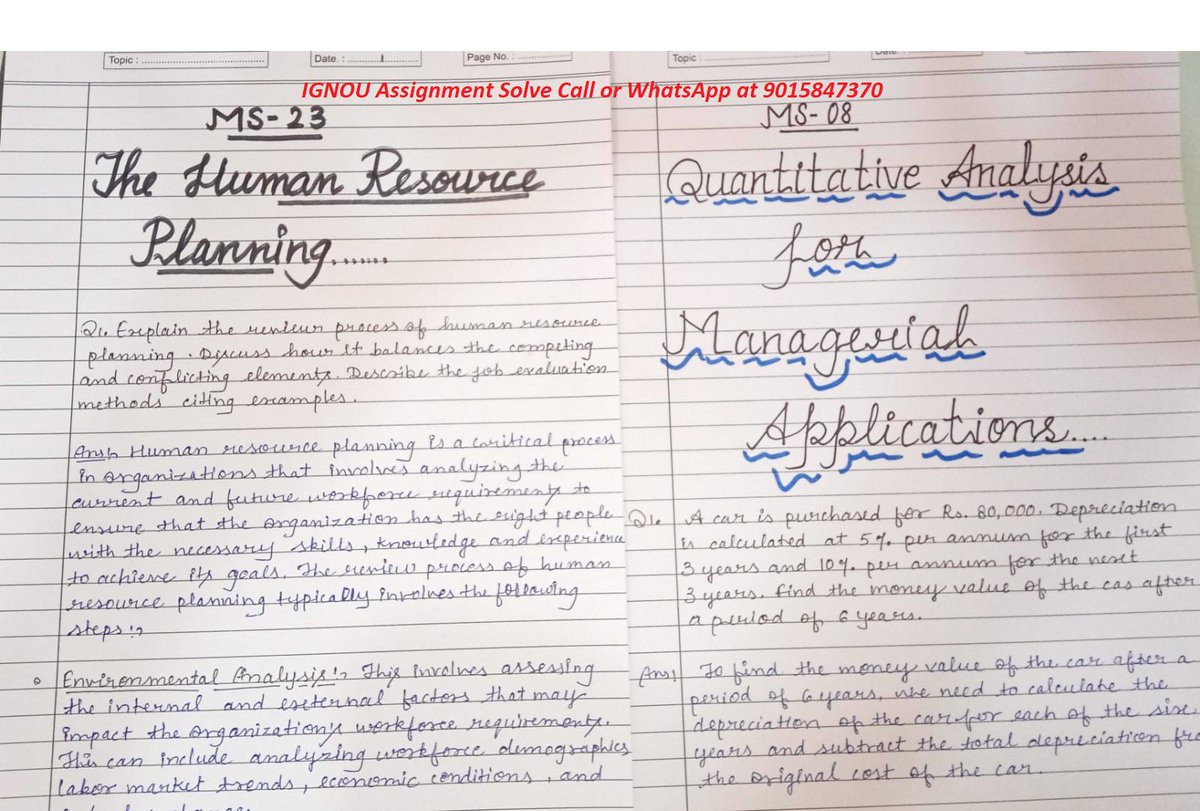 Topic : ........................................
Date. : ............/............
Page No. : ..................
Topic : ........................................
Date. : ............
IGNOU Assignment Solve Call or WhatsApp at 9015847370
MS-23
The Human Resource
Planning.......
Q1. Explain the review process of human resource
planning. Discuss how it balances the competing
and conflicting elements. Describe the job evaluation
methods citing examples.
Ans1. Human resource planning is a critical process
in organizations that involves analyzing the
current and future workforce requirements to
ensure that the organization has the right people
with the necessary skills, knowledge and experience
to achieve its goals. The review process of human
resource planning typically involves the following
steps:-
Environmental Analysis:- This involves assessing
the internal and external factors that may
impact the organization's workforce requirements.
This can include analyzing workforce demographics
labor market trends, economic conditions, and
MS-08
Quantitative Analysis
for
Managerial
Applications....
Q1. A car is purchased for Rs. 80,000. Depreciation
is calculated at 5% per annum for the first
3 years and 10% per annum for the next
3 years. find the money value of the cas after
a period of 6 years.
Ans1 To find the money value of the car after a
period of 6 years, we need to calculate the
depreciation of the car for each of the six
years and subtract the total depreciation fro
the original cost of the car.